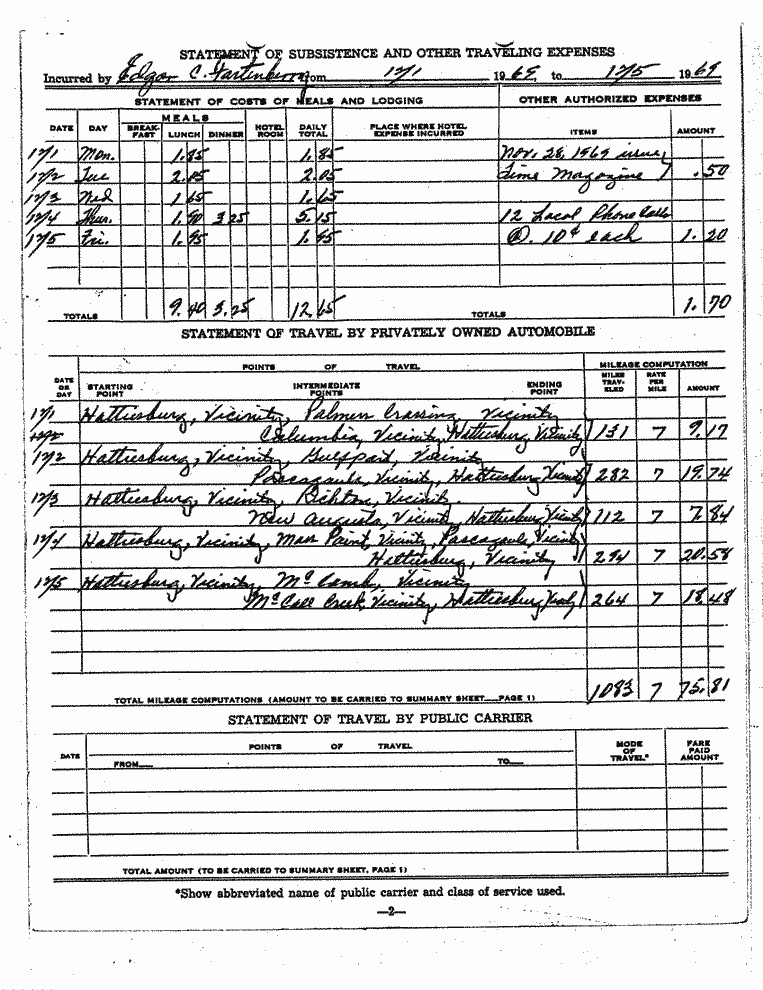 STATEMENT OF SUBSISTENCE AND OTHER TRAVELING EXPENSES
Incurred by Edgar C. Fortenberry from 12/1 1969, to 12/5 1969
STATEMENT OF COSTS OF MEALS AND LODGING OTHER AUTHORIZED EXPENSES
MEALS
DATE DAY BREAK-FAST LUNCH DINNER HOTEL ROOM DAILY TOTAL PLACE WHERE HOTEL EXPENSE INCURRED ITEMS AMOUNT
12/1 Mon. 1.85 1.85 Nov. 28, 1969 issue
12/2 Tue 2.05 2.05 Time Magazine .50
12/3 Wed 1.65 1.65
12/4 Thur. 1.90 3.25 5.15 12 Local Phone Calls
12/5 Fri. 1.95 1.95 @. 10¢ each 1.20
TOTALS 9.40 3.25 12.65 TOTALS 1.70
STATEMENT OF TRAVEL BY PRIVATELY OWNED AUTOMOBILE
POINTS OF TRAVEL MILEAGE COMPUTATION
DATE OR DAY STARTING POINT INTERMEDIATE POINTS ENDING POINT MILES TRAV-ELED RATE PER MILE AMOUNT
12/1 Hattiesburg, Vicinity, Palmers Crossing, Vicinity
12/2 Columbia, Vicinity, Hattiesburg, Vicinity 131 7 9.17
12/2 Hattiesburg, Vicinity, Gulfport, Vicinity
Pascagoula, Vicinity, Hattiesburg, Vicinity 282 7 19.74
12/3 Hattiesburg, Vicinity, Richton, Vicinity.
New Augusta, Vicinity, Hattiesburg, Vicinity 112 7 7.84
12/4 Hattiesburg, Vicinity, Moss Point, Vicinity, Pascagoula, Vicinity
Hattiesburg, Vicinity 294 7 20.58
12/5 Hattiesburg, Vicinity, McComb, Vicinity
McCall Creek, Vicinity, Hattiesburg, 264 7 18.48
TOTAL MILEAGE COMPUTATIONS (AMOUNT TO BE CARRIED TO SUMMARY SHEET—PAGE 1) 1083 7 75.81
STATEMENT OF TRAVEL BY PUBLIC CARRIER
DATE POINTS OF TRAVEL MODE OF TRAVEL* FARE PAID AMOUNT
FROM— TO—
TOTAL AMOUNT (TO BE CARRIED TO SUMMARY SHEET, PAGE 1)
*Show abbreviated name of public carrier and class of service used.
—2—